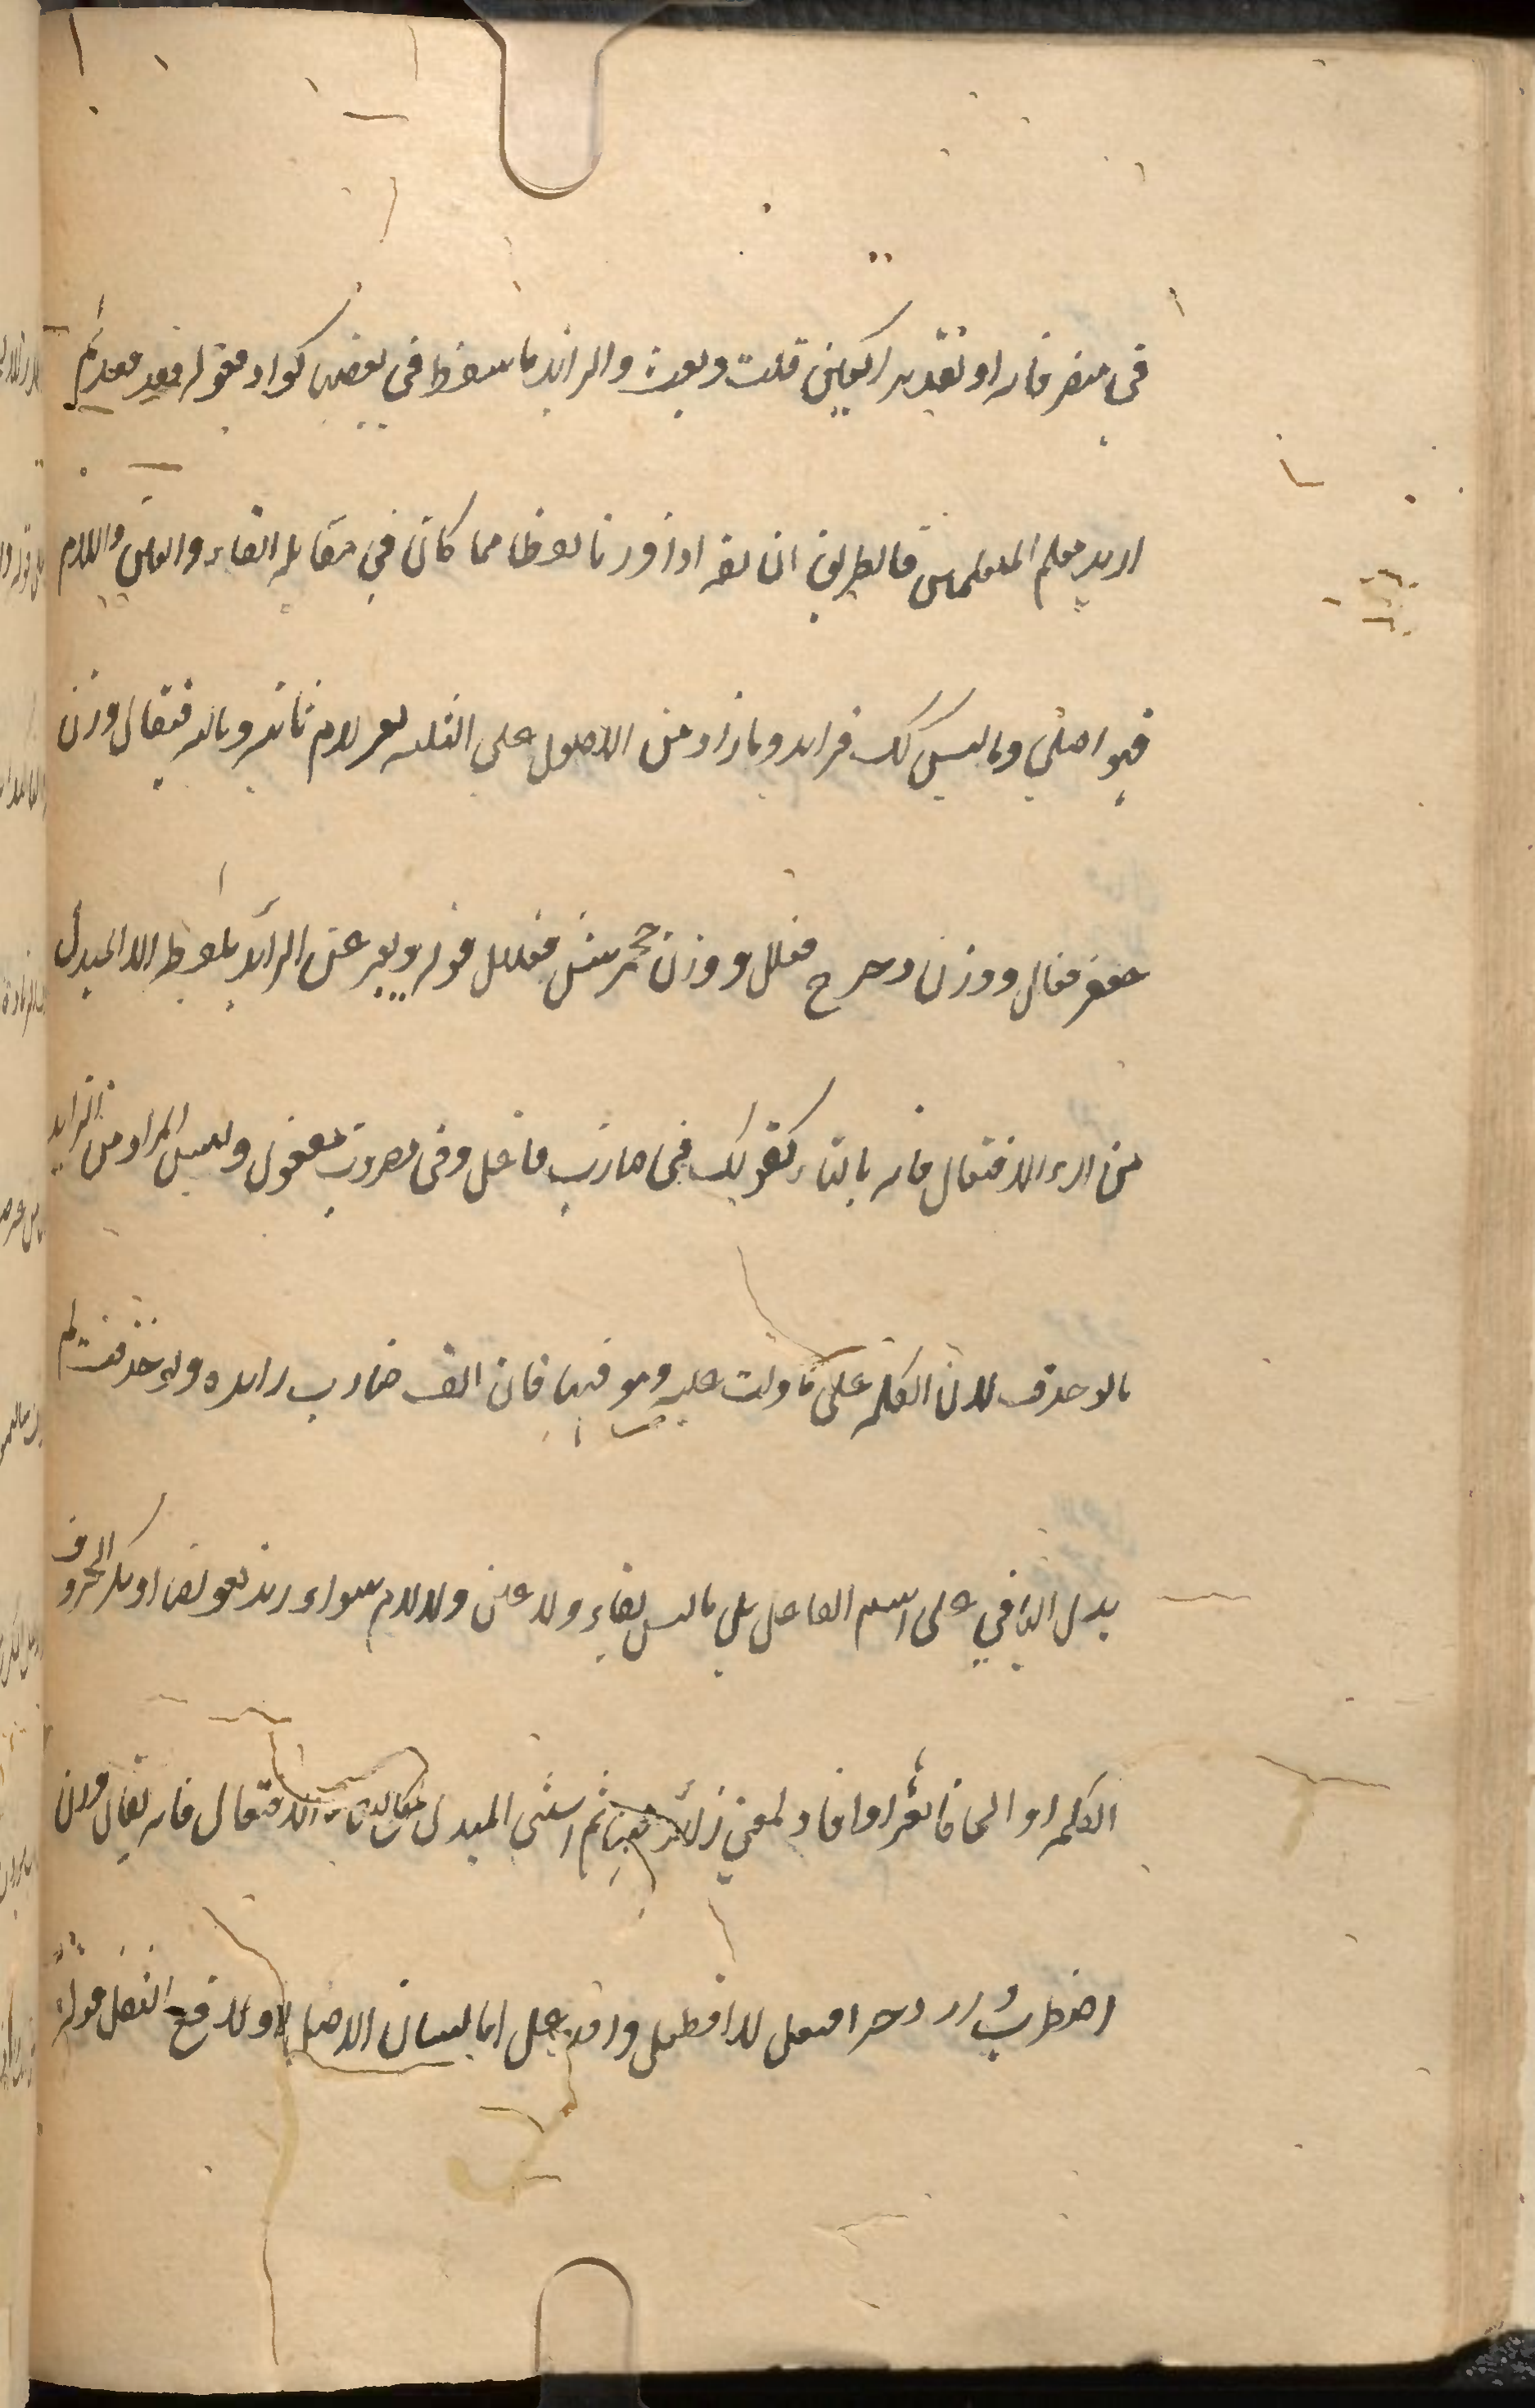 في متصرفاته او تقديرا كعين قلت وبعت والزايد ما سقط في بعضها كواو مقوله فقعد مقعدكم
اريد معلم المتعلمين فالطريق ان يقه اذا وزنا لفظا مما كان في مقابله الفاء والعين واللام
فهو اصلي وما ليس كك فزايد وما زاد من الاصول على الثلثه يعبر بلام ثانيه وثالثه فيقال وزن
جعفر فعلل ووزن دحرج فعلل ووزن جحمرش فعلل قوله ويعبر عن الزائد بلفظه الا المبدل
من تاء الافتعال فانه بالتاء كقولك في ضارب فاعل وفي مضروب مفعول وليس المراد من الزايد
ما لو حذف لدل الكلمه على ما دلت عليه وهو فيها فان الف ضارب زايده ولو حذفت لم
يدل الباقي على اسم الفاعل بل ما ليس بفاء ولا عين ولا لام سواء زيد تعويضا او تكثير الحروف
الكلمه او الحاقا بغير او افاد لمعنى زائد فيها ثم استثنى المبدل من تاء الافتعال فانه يقال وزن
اضطرب وازدجر افتعل لا افطعل وافدعل اما لبيان الاصل او لدفع الثقل قوله